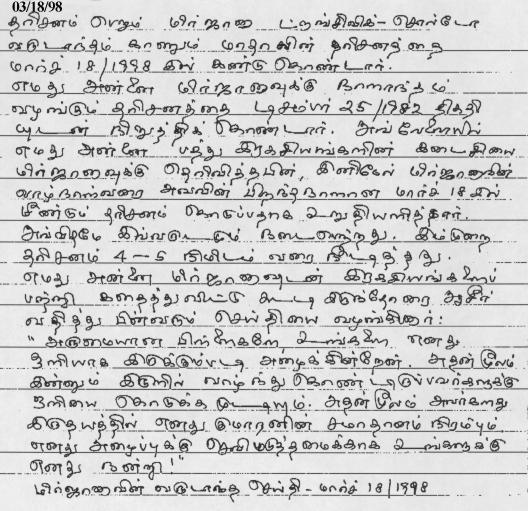 03/18/98
தரிசனம் பெறும் மிர்ஜானா ட்றகிவிக்-சொல்டோ
வருடாந்தம் காணும் மாதாவின் தரிசனத்தை
மார்ச் 18/1998 இல் கண்டு கொண்டார்.
எமது அன்னை மிர்ஜானாவுக்கு நாளாந்தம்
வழங்கும் தரிசனத்தை டிசம்பர் 25/1982 திகதி
யுடன் நிறுத்திக் கொண்டார். அவ்வேளையில்
எமது அன்னை பத்து இரகசியங்களின் கடைசியை
மிர்ஜானாவுக்கு தெரிவித்தபின், இனிமேல் மிர்ஜானாவின்
வாழ்நாள்வரை அவளின் பிறந்தநாளான மார்ச் 18 இல்
மீண்டும் தரிசனம் கொடுப்பதாக உறுதியளித்தார்.
அவ்விதமே இவ்வருடமும் நடைபெற்றது. இம்முறை
தரிசனம் 4-5 நிமிடம் வரை நீடித்தது.
எமது அன்னை மிர்ஜானாவுடன் இரகசியங்களைப்
பற்றி கதைத்துவிட்டு கூடி இருந்தோரை ஆசீர்
வதித்து பின்வரும் செய்தியை வழங்கினார்:
"அருமையான பிள்ளைகளே, உங்களை எனது
ஒளியாக இருக்கும்படி அழைக்கின்றேன். அதன் மூலம்
இன்னும் இருளில் வாழ்ந்து கொண்டிருப்பவர்களுக்கு
ஒளியை கொடுக்க முடியும். அதன் மூலம் அவர்களது
இருதயத்தில் எனது குமாரனின் சமாதானம் நிரம்பும்
எனது அழைப்புக்கு செவிமடுத்தமைக்காக உங்களுக்கு
எனது நன்றி!"
மிர்ஜானாவின் வருடாந்த செய்தி - மார்ச் 18/1998